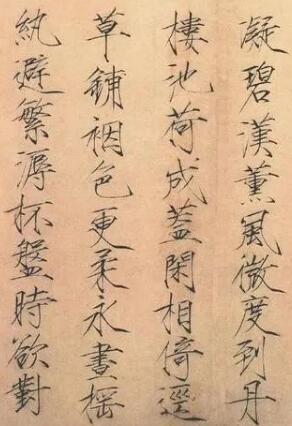 凝碧漢薰風微度到丹
樓池荷成蓋閑相倚逕
草鋪裀色更柔永晝搖
紈避繁溽杯盤時欲對